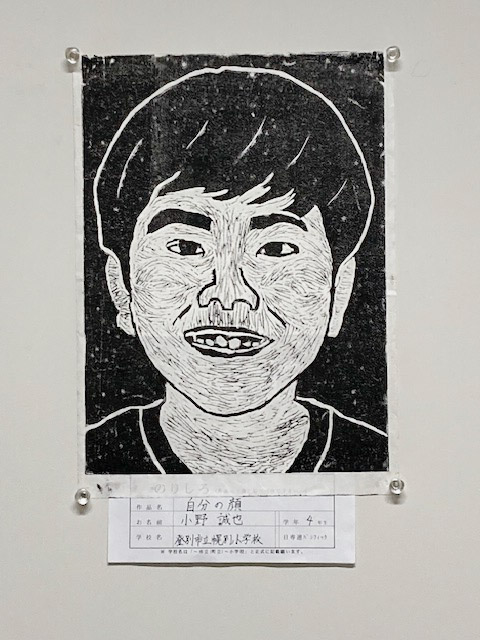 のりしろ
作品名 自分の顔
お名前 小野 誠也 学年 4 年生
学校名 登別市立幌別小学校
※ 学校名は「～市立(町立)～小学校」と正式に記載願います。